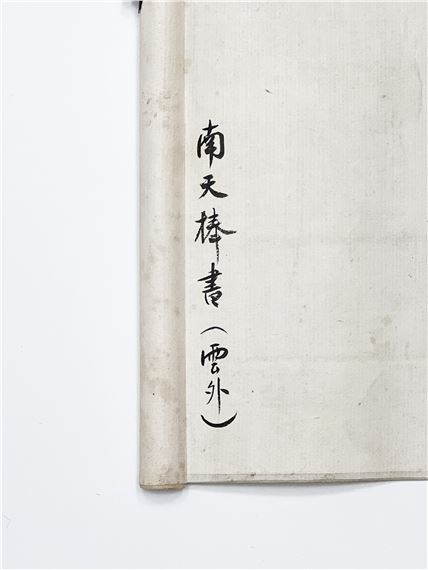 南天棒書（雲外）